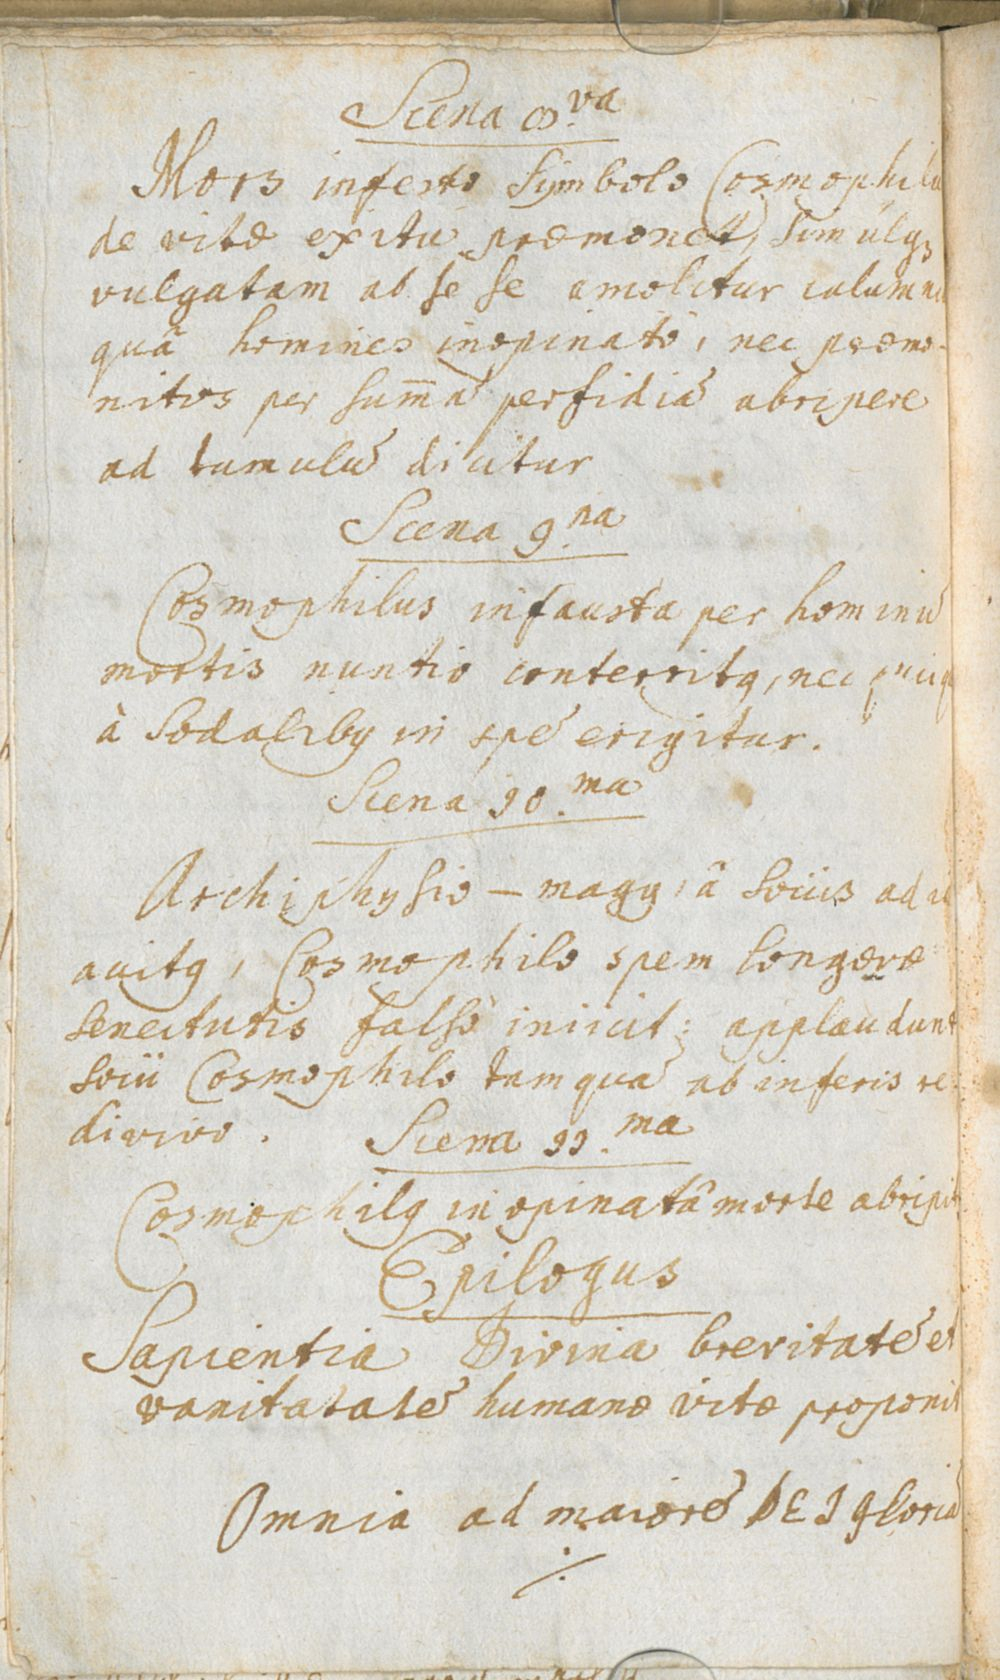 Scena 8.va
Mors infesto symbolo Cosmophilu
de vitæ exitu præmonet, simulq3
vulgatam ab se se amolitur calumni
quâ homines inopinatò, nec præmo-
nitos per sum̅ā perfidiā abripere
ad tumulū dicitur
Scena 9.na
Cosmophilus infausta per hominū
mortis nuntio conterritꝰ, nec
à Sodalibꝰ in spē erigitur.
Scena 10.ma
Archiphysio-magꝰ, â sociis ad
citꝰ, Cosmophilo spem longævæ
senectutis falsò iniicit: applaudunt
socii Cosmophilo tamquā ab inferis re
divivo.
Scena 11.ma
Cosmophilꝰ inopinatâ morte abripit
Epilogus
Sapientia Divina brevitatē et
vanitatatē humanæ vitæ proponit
Omnia ad maiorē DEI gloriā